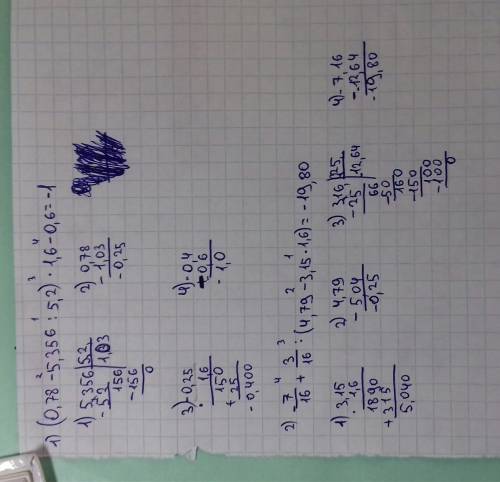 1) (0,78 - 5,356 : 5,2) · 1,6 - 0,6 = -1
2 1 3 4
1) 5,356 | 5,2
- 5,2 | 1,03
156
- 156
0
2) 0,78
- 1,03
- 0,25
3) - 0,25
· 1,6
150
+ 25
- 0,400
4) - 0,4
- 0,6
- 1,0
2) - 7/16 + 3/16 : (4,79 - 3,15 · 1,6) = - 19,80
4 3 2 1
1) 3,15
· 1,6
1890
+ 315
5,040
2) 4,79
- 5,04
- 0,25
3) 3,16 | 25
- 25 | 12,64
66
- 50
160
- 150
100
- 100
0
4) - 7,16
- 12,64
- 19,80